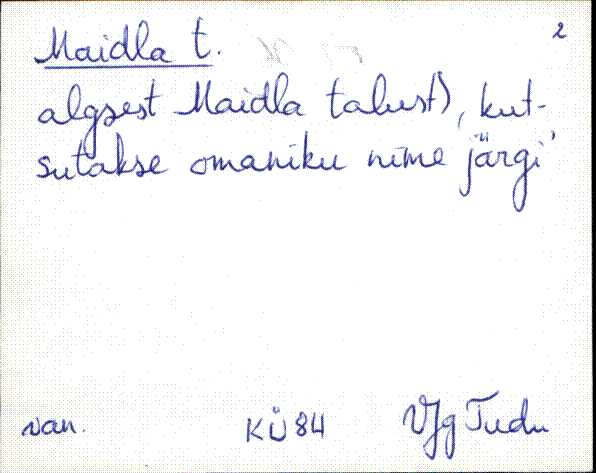 2
Maidla t.
algsest Maidla talust), kut-
sutakse omaniku nime järgi'
van. KÜ 84 VJg Tudu